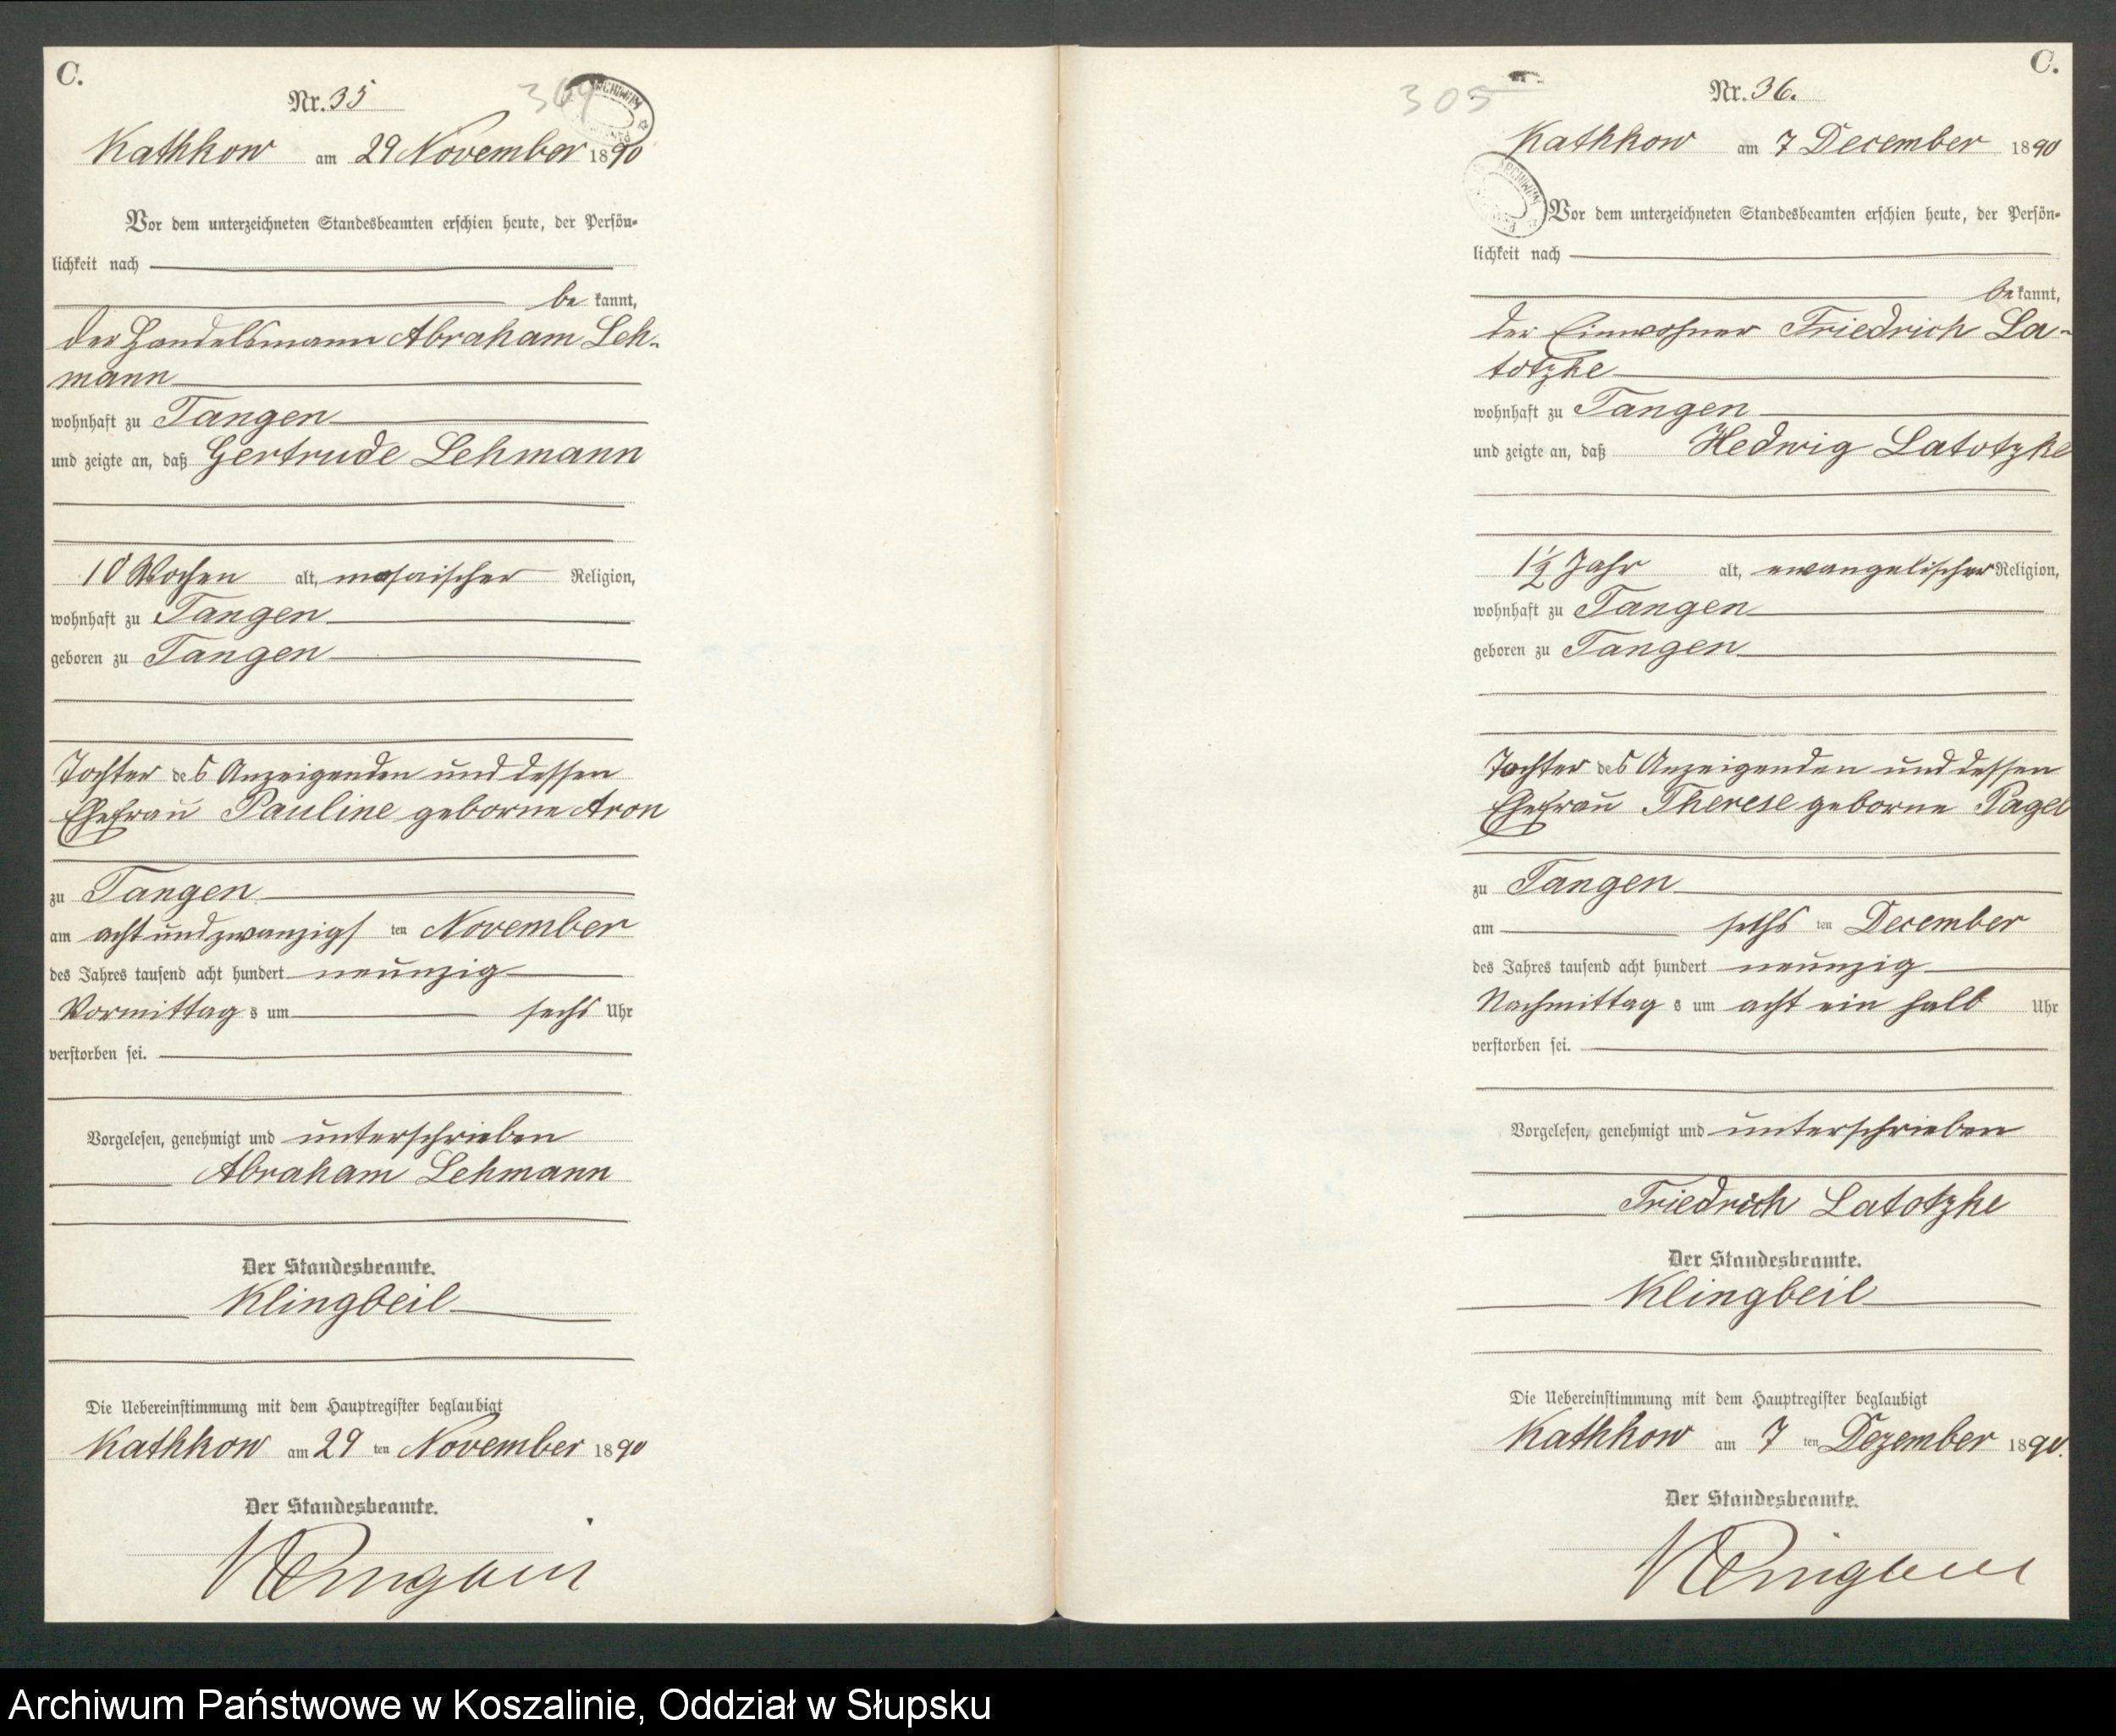 C.
Nr. 35
304
Kathkow am 29 November 1890
Vor dem unterzeichneten Standesbeamten erschien heute, der Persön-
lichkeit nach
be kannt,
der Handelsmann Abraham Leh-
mann
wohnhaft zu Tangen
und zeigte an, daß Gertrude Lehmann
10 Wochen alt, mosaischer Religion,
wohnhaft zu Tangen
geboren zu Tangen
Tochter des Anzeigenden und dessen
Ehefrau Pauline geborne Aron
zu Tangen
am acht und zwanzigs ten November
des Jahres tausend acht hundert neunzig
Vormittag s um sechs Uhr
verstorben sei.
Vorgelesen, genehmigt und unterschrieben
Abraham Lehmann
Der Standesbeamte.
Klingbeil
Die Uebereinstimmung mit dem Hauptregister beglaubigt
Kathkow am 29 ten November 1890
Der Standesbeamte.
Klingbeil
C.
Nr. 36.
305
Kathkow am 7 December 1890
Vor dem unterzeichneten Standesbeamten erschien heute, der Persön-
lichkeit nach
be kannt,
der Einwohner Friedrich La-
totzke
wohnhaft zu Tangen
und zeigte an, daß Hedwig Latotzke
1½ Jahr alt, ewangelischer Religion,
wohnhaft zu Tangen
geboren zu Tangen
Tochter des Anzeigenden und dessen
Ehefrau Therese geborne Pagel
zu Tangen
am sechs ten December
des Jahres tausend acht hundert neunzig
Nachmittag s um acht ein halb Uhr
verstorben sei.
Vorgelesen, genehmigt und unterschrieben
Friedrich Latotzke
Der Standesbeamte.
Klingbeil
Die Uebereinstimmung mit dem Hauptregister beglaubigt
Kathkow am 7 ten Dezember 1890.
Der Standesbeamte.
Klingbeil
Archiwum Państwowe w Koszalinie, Oddział w Słupsku